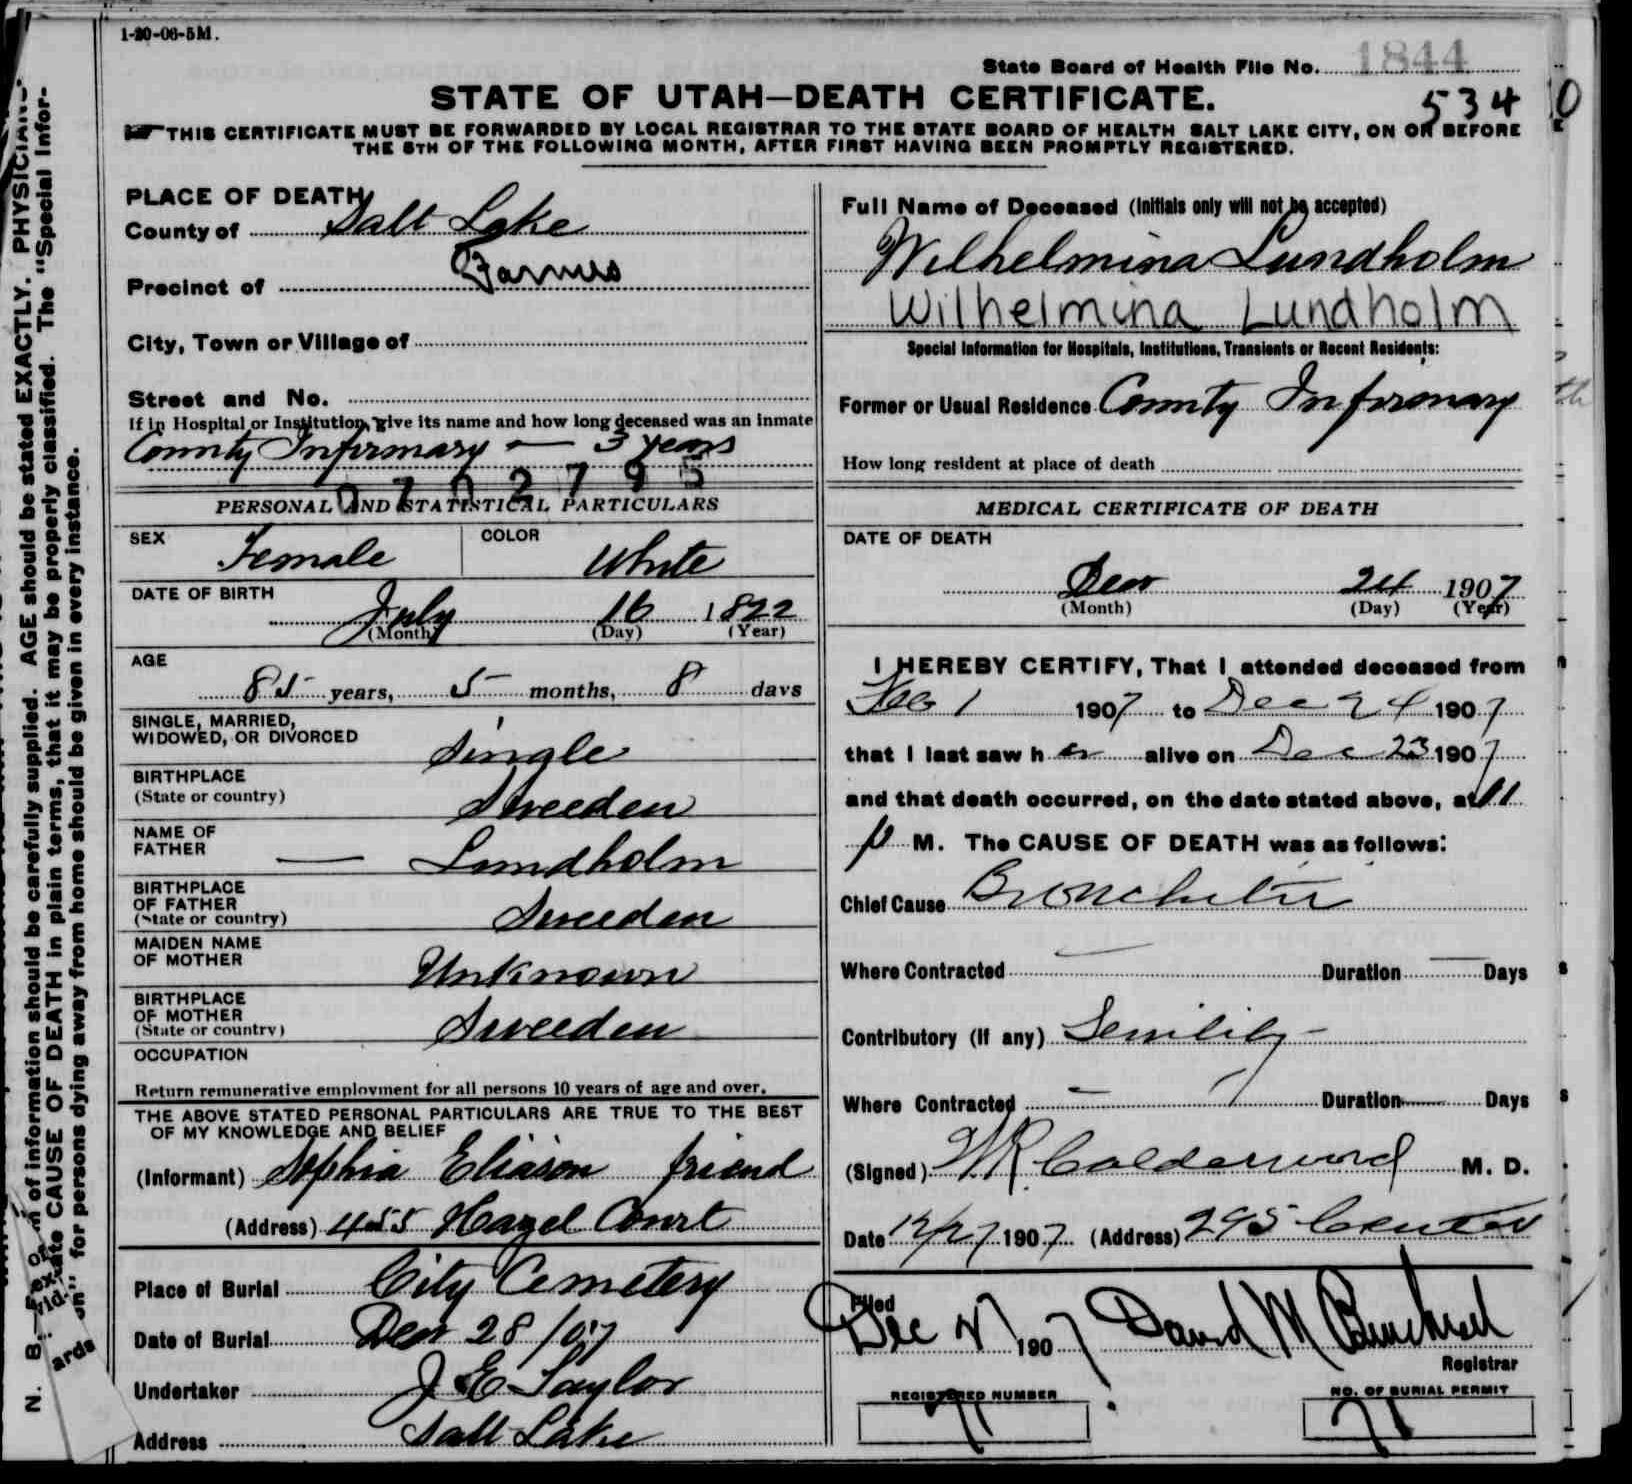 1-20-06-5M.
State Board of Health File No. 1844
STATE OF UTAH—DEATH CERTIFICATE.
534
THIS CERTIFICATE MUST BE FORWARDED BY LOCAL REGISTRAR TO THE STATE BOARD OF HEALTH SALT LAKE CITY, ON OR BEFORE
THE 5TH OF THE FOLLOWING MONTH, AFTER FIRST HAVING BEEN PROMPTLY REGISTERED.
PLACE OF DEATH
County of Salt Lake
Precinct of Farmers
City, Town or Village of
Street and No.
If in Hospital or Institution, give its name and how long deceased was an inmate
County Infirmary — 3 years
0702795
PERSONAL AND STATISTICAL PARTICULARS
SEX Female COLOR White
DATE OF BIRTH
July 16 1822
(Month) (Day) (Year)
AGE
85 years, 5 months, 8 days
SINGLE, MARRIED,
WIDOWED, OR DIVORCED Single
BIRTHPLACE
(State or country) Sweeden
NAME OF
FATHER — Lundholm
BIRTHPLACE
OF FATHER
(State or country) Sweeden
MAIDEN NAME
OF MOTHER Unknown
BIRTHPLACE
OF MOTHER
(State or country) Sweeden
OCCUPATION
Return remunerative employment for all persons 10 years of age and over.
THE ABOVE STATED PERSONAL PARTICULARS ARE TRUE TO THE BEST
OF MY KNOWLEDGE AND BELIEF
(Informant) Sophia Eliason friend
(Address) 455 Hazel Court
Place of Burial City Cemetery
Date of Burial Dec 28/07
Undertaker J E Taylor
Address Salt Lake
Full Name of Deceased (Initials only will not be accepted)
Wilhelmina Lundholm
Wilhelmina Lundholm
Special Information for Hospitals, Institutions, Transients or Recent Residents:
Former or Usual Residence County Infirmary
How long resident at place of death
MEDICAL CERTIFICATE OF DEATH
DATE OF DEATH
Dec 24 1907
(Month) (Day) (Year)
I HEREBY CERTIFY, That I attended deceased from
Feb 1 1907 to Dec 24 1907
that I last saw h er alive on Dec 23 1907
and that death occurred, on the date stated above, at 11
p M. The CAUSE OF DEATH was as follows:
Chief Cause Bronchitis
Where Contracted — Duration — Days
Contributory (If any) Senility
Where Contracted — Duration — Days
(Signed) W R Calderwood M. D.
Date 12/27 1907 (Address) 295 Center
Filed
Dec 27 1907 David M
Registrar
REGISTERED NUMBER
71
NO. OF BURIAL PERMIT
71
N. B.
of information should be carefully supplied. AGE should be stated EXACTLY. PHYSICIANS
state CAUSE OF DEATH in plain terms, that it may be properly classified. The "Special Infor-
on" for persons dying away from home should be given in every instance.